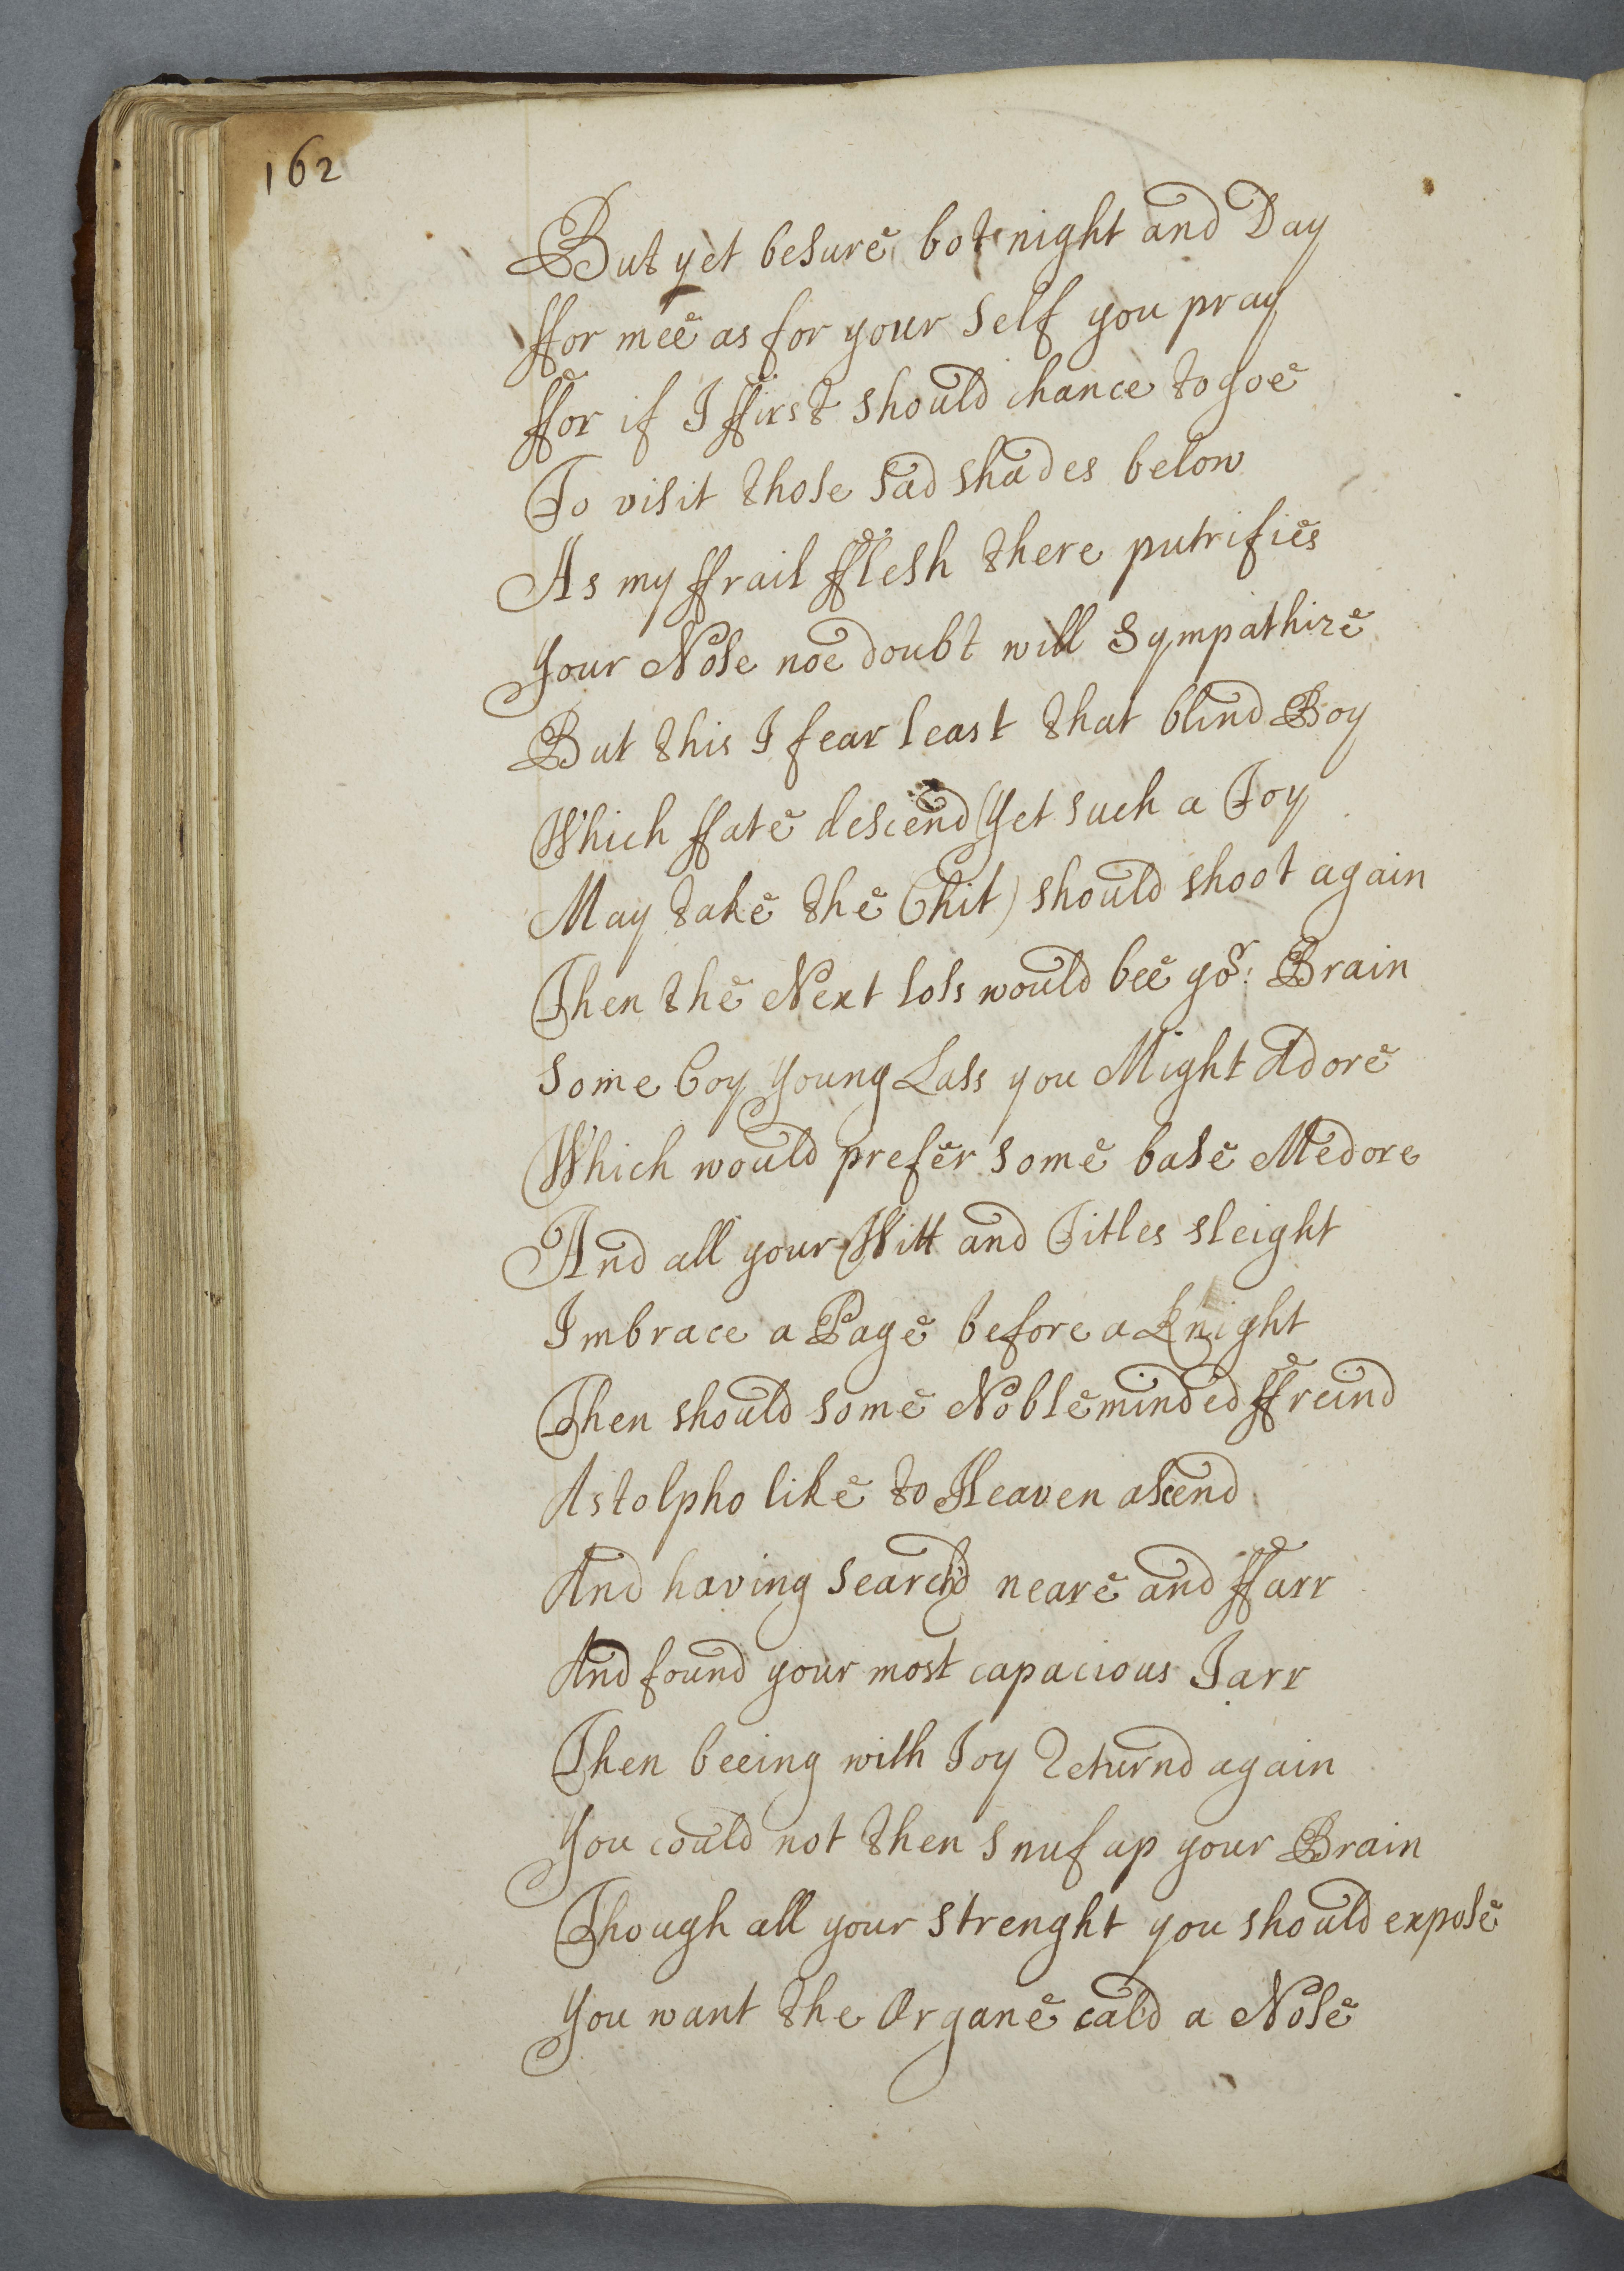 162
But yet besure bot night and Day
ffor mee as for your self you pray
ffor if I ffirst should chance to goe
To visit those sad shades below
As my ffrail fflesh there putrifies
Your Nose noe doubt will Sympathize
But this I fear least that blind Boy
Which ffate descend (Yet such a Toy
May take the Chit) should shoot again
Then the Next loss would bee yor: Brain
Some Coy Young Lass you Might Adore
Which would prefer some base Medore
And all your Witt and Titles sleight
Imbrace a Page before a Knight
Then should some Nobleminded ffreind
Astolpho like to Heaven ascend
And having searchd neare and ffarr
And found your most capacious Jarr
Then beeing with Joy Returnd again
You could not then snuf up your Brain
Though all your strenght you should expose
You want the Organe cald a Nose